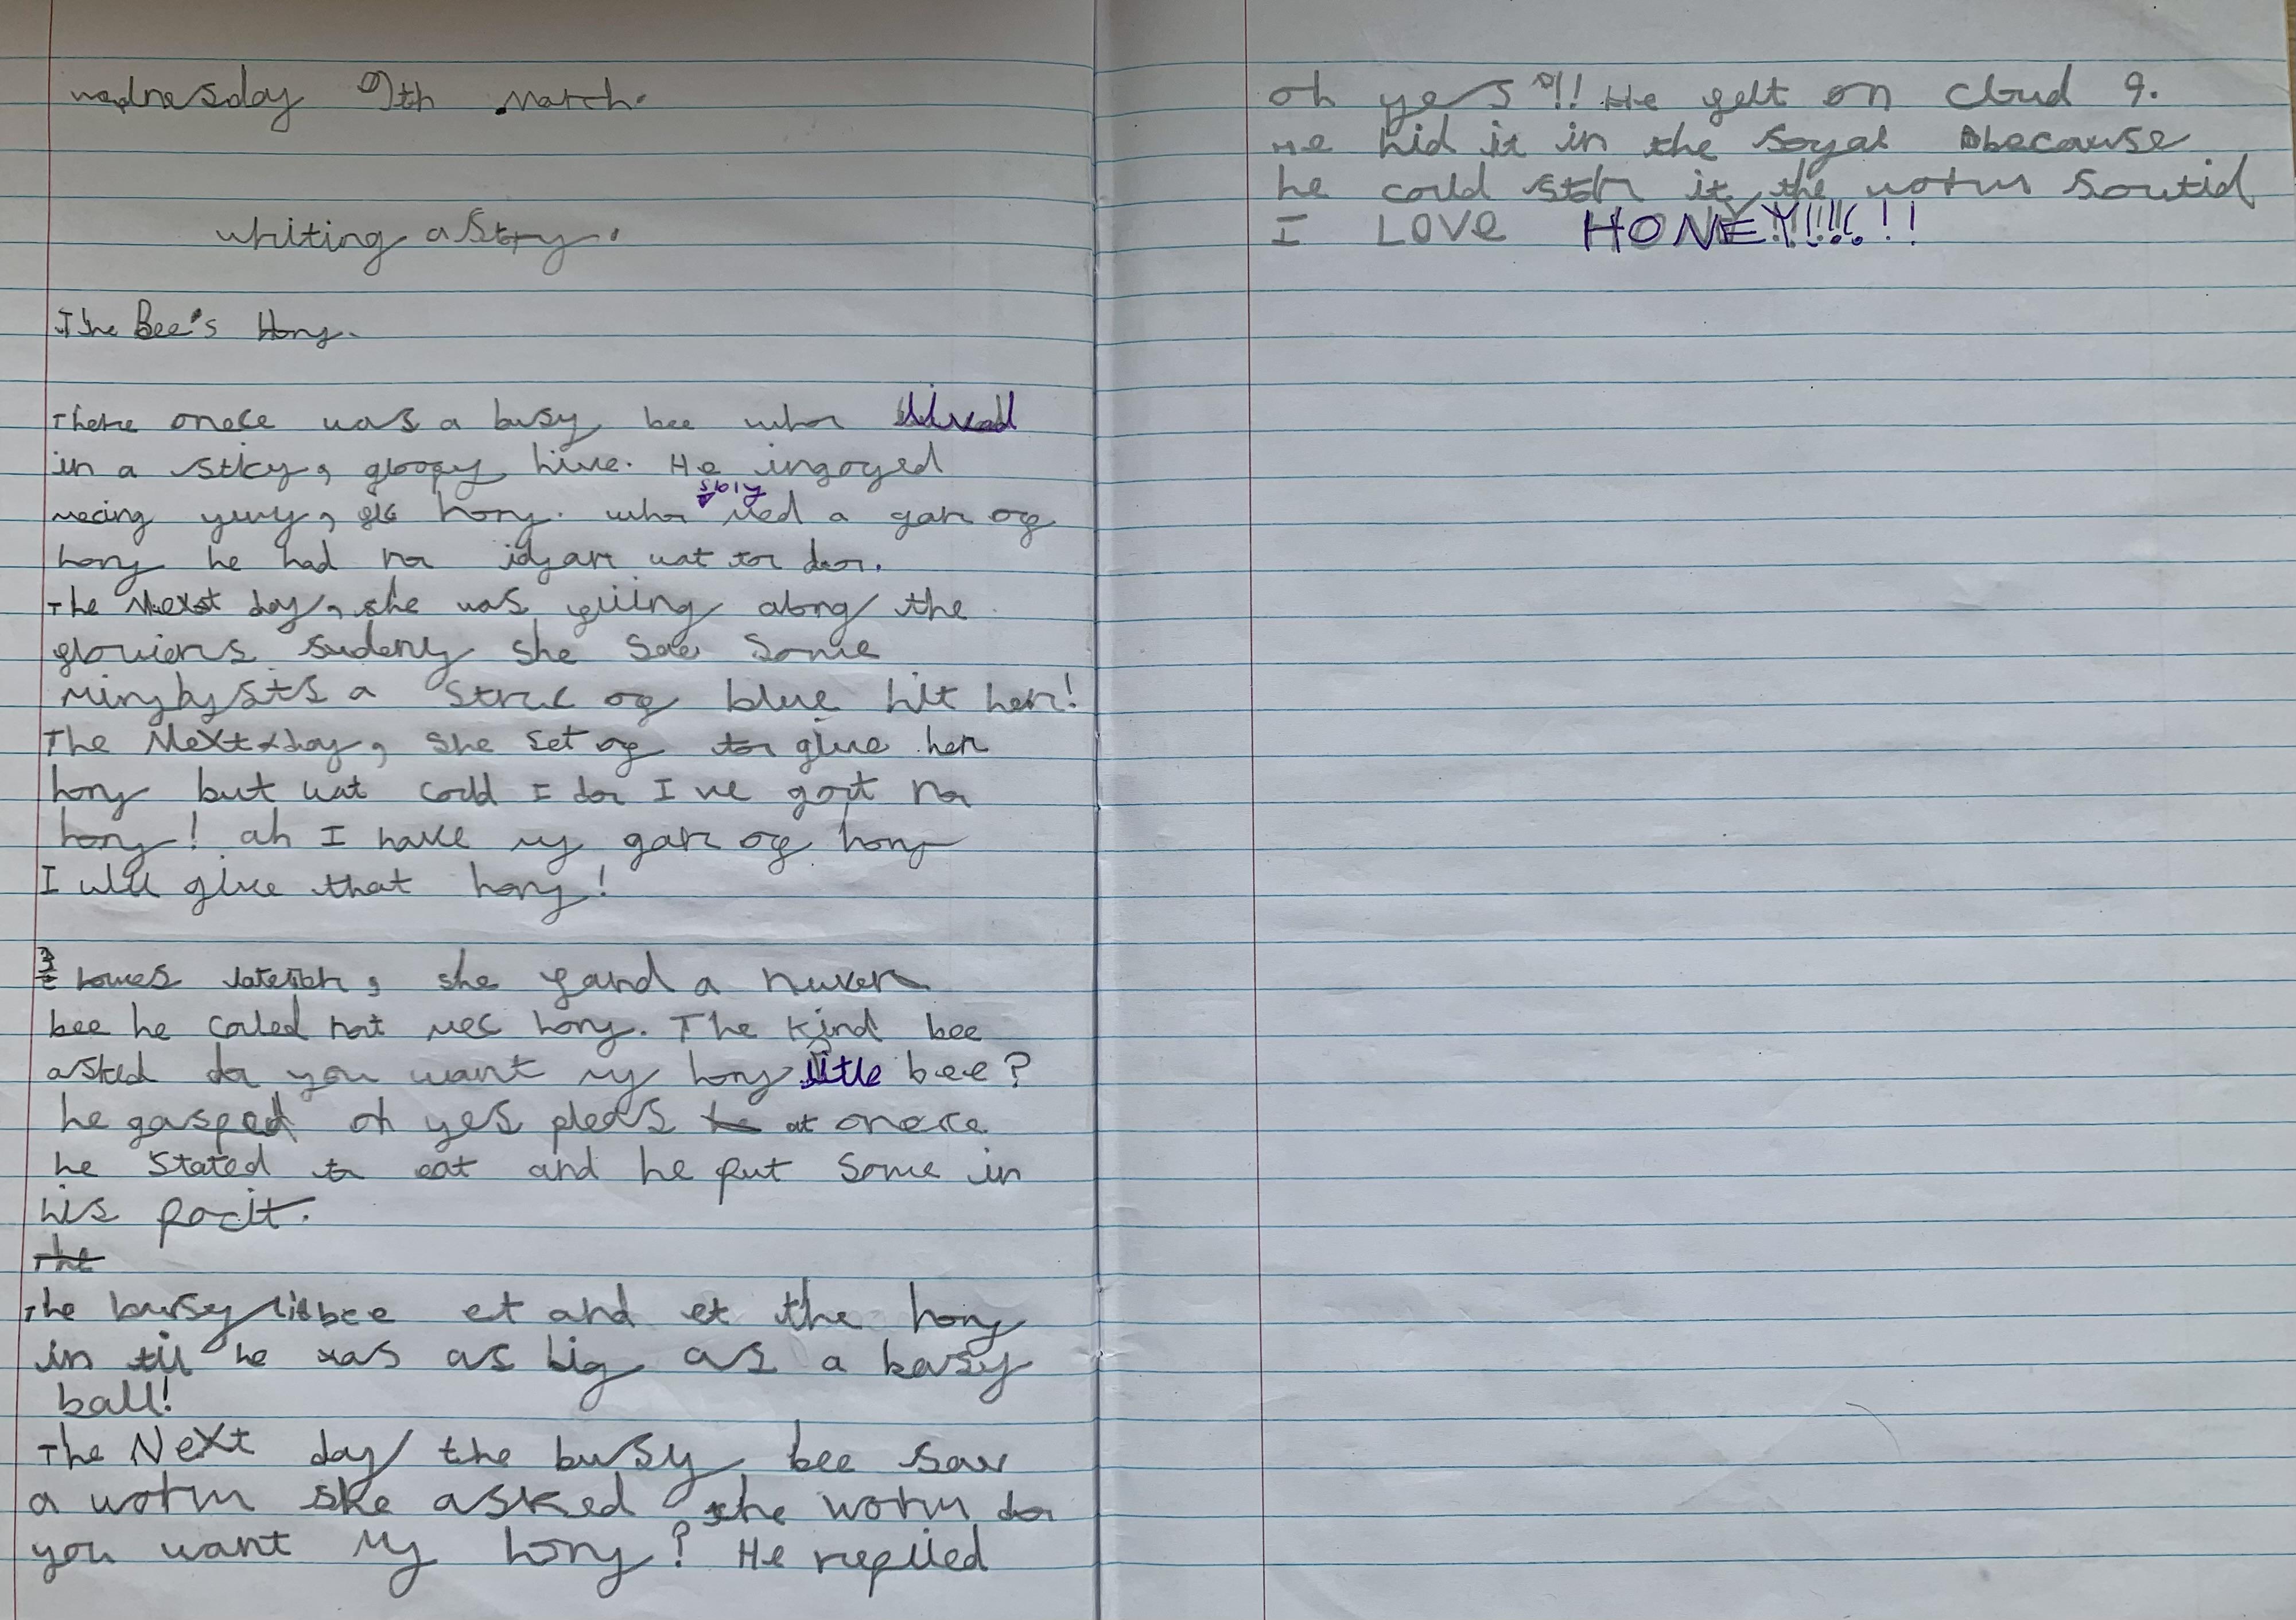 wednesday 9th March.
Writing a Story.
The Bee's Hony.
There onece was a busy bee who lived
in a sticy, gloopy hive. He ingoyed
mecing yumy, hony. who oly med a gar of
hony he had no idyar wat to do.
The Next day, she was fliing along the
flowiers sudeny she sae some
a stric of blue hit her!
The Next day, she set of to give her
hony but wat coud I do I've got no
hony! ah I have my gar of hony
I will give that hony!
3 howes later, she fand a nuver
bee he coded not mec hony. The kind bee
asked do you want my hony little bee?
he gasped oh yes pleas at onece
he stated to eat and he put some in
his pocit.
The
The busy bee et and et the hony
in til he was as big as a basy
ball!
The Next day the busy bee saw
a worm she asked the worm do
you want my hony? He replied
oh yes!! He felt on cloud 9.
He hid it in the soyal because
he could stor it, the worm soutid
I LOVE HONEY!!!!!!